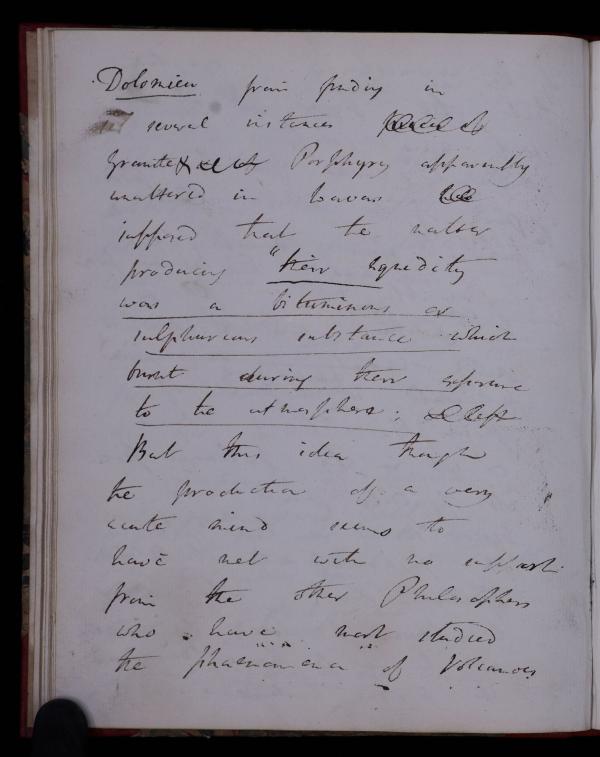 Dolomieu from finding in
several instances
granite & Porphyry apparently
unaltered in lavas
supposed that the matter
producing "their liquidity
was a bituminous or
sulphureous substance which
burnt during their exposure
to the atmosphere;
But this idea though
the production of a very
acute mind seems to
have met with no support
from the other Philosophers
who have most studied
the phaenomena of Volcanoes